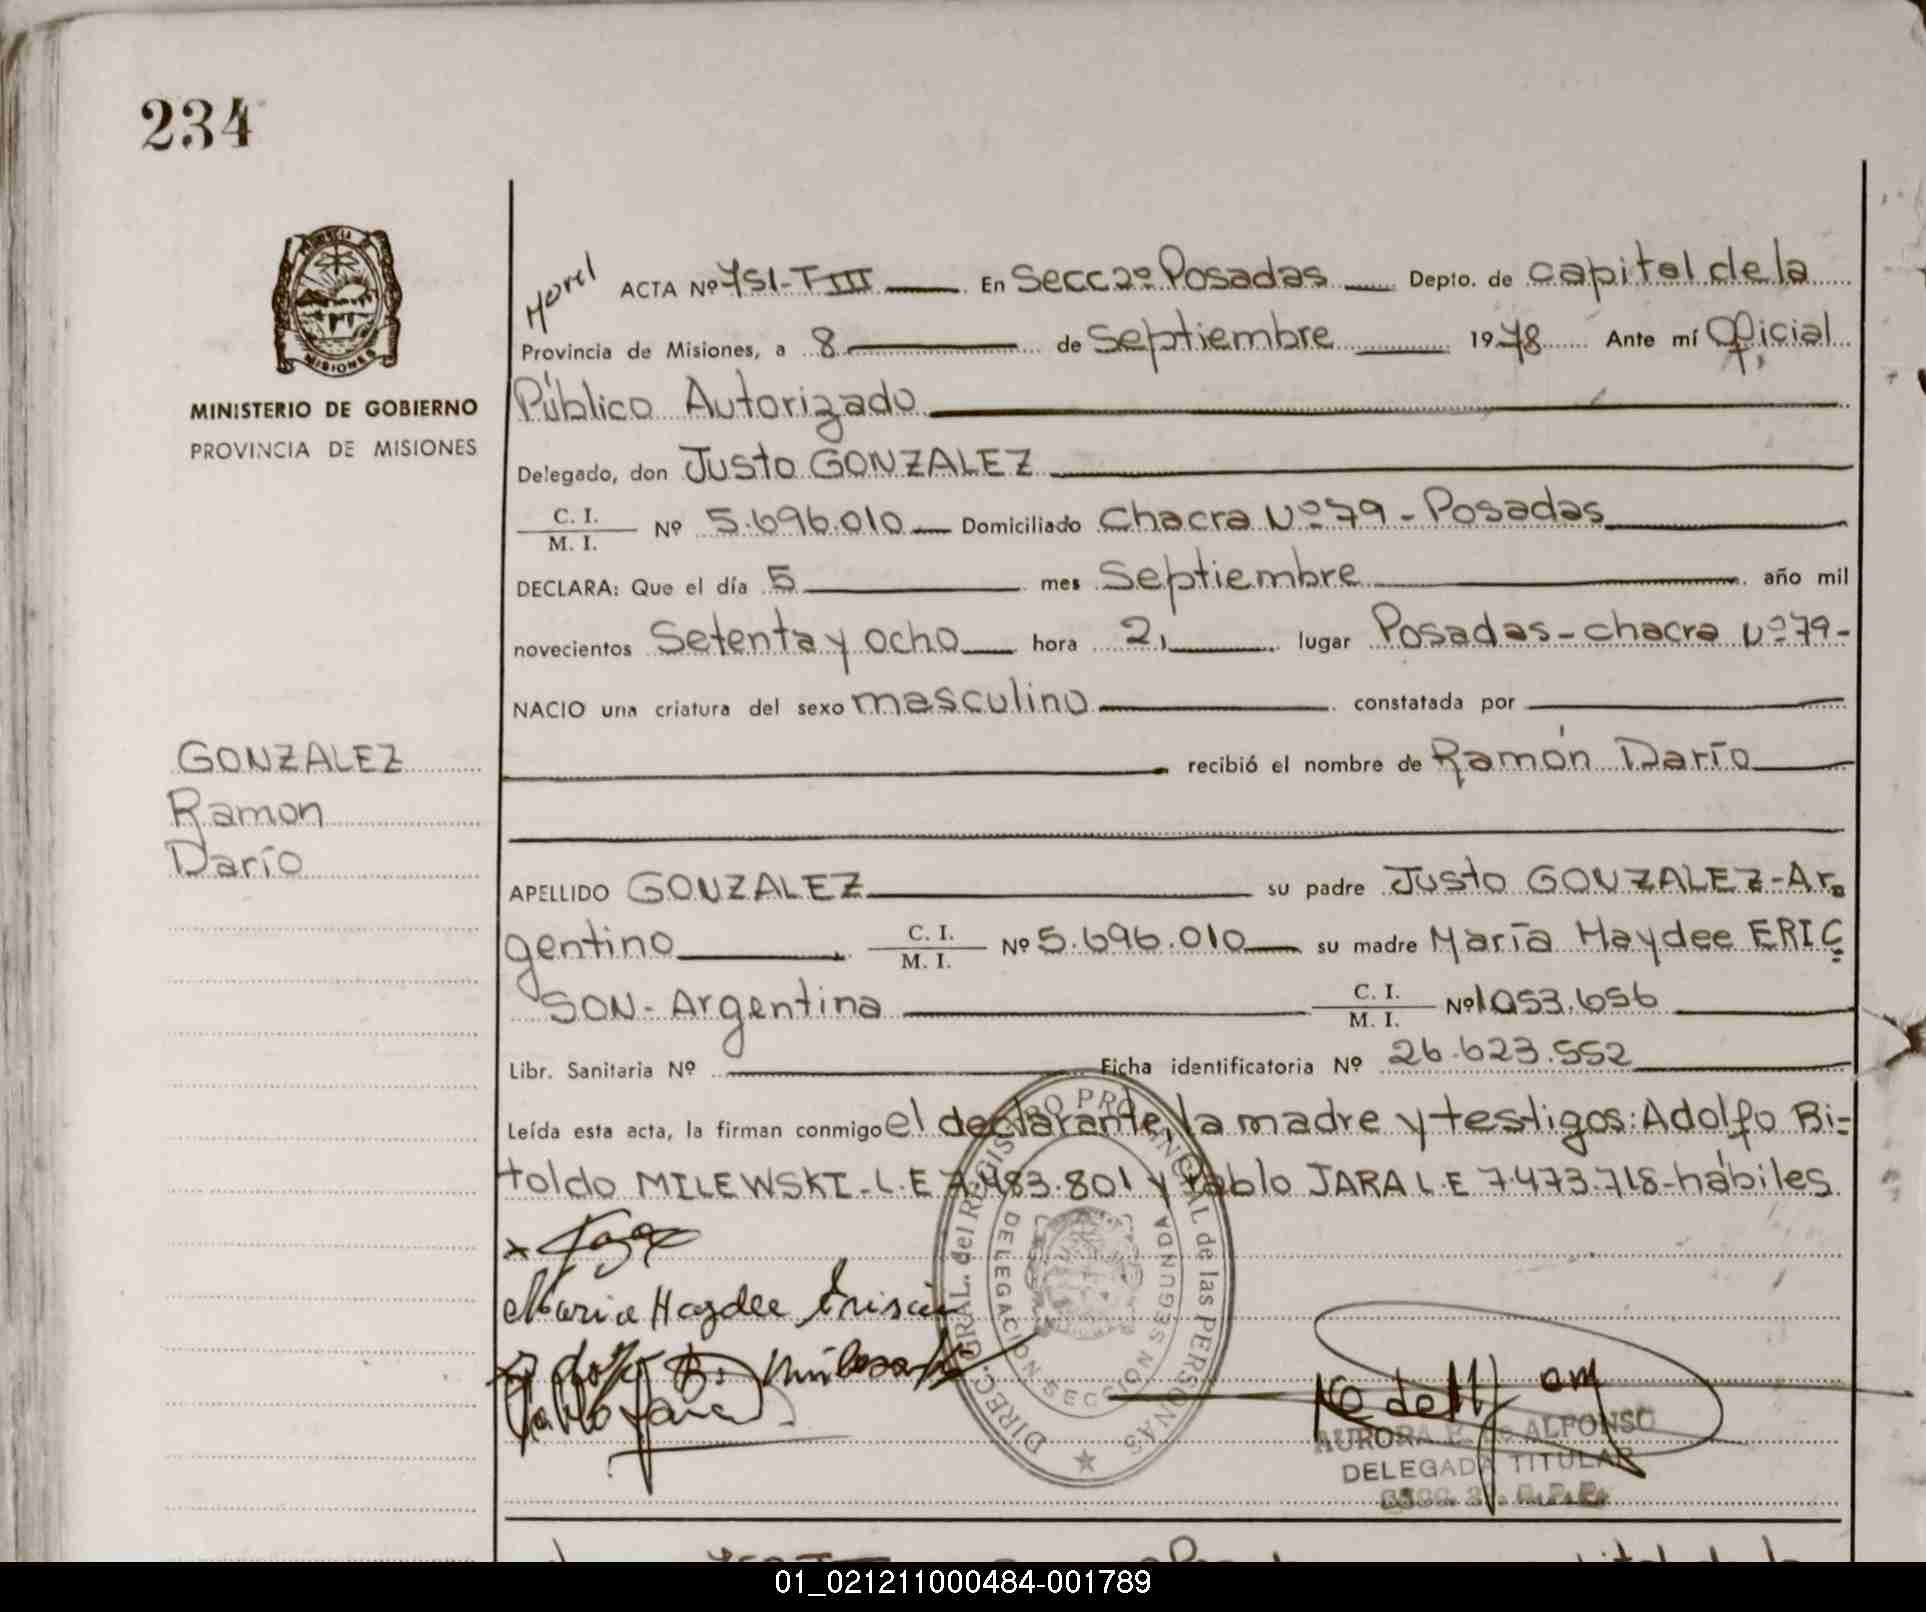 234
PROVINCIA DE
MISIONES
MINISTERIO DE GOBIERNO
PROVINCIA DE MISIONES
GONZALEZ
Ramon
Darío
ACTA Nº 751-T III En Secc 2º Posadas Depto. de capital de la
Provincia de Misiones, a 8 de Septiembre 1978 Ante mí Oficial
Público Autorizado
Delegado, don Justo GONZALEZ
C. I.
M. I. Nº 5.696.010 Domiciliado Chacra Nº 79 - Posadas
DECLARA: Que el día 5 mes Septiembre año mil
novecientos Setenta y ocho hora 2, lugar Posadas - chacra Nº 79 -
NACIO una criatura del sexo masculino constatada por
recibió el nombre de Ramón Darío
APELLIDO GONZALEZ su padre Justo GONZALEZ - Ar
gentino C. I. M. I. Nº 5.696.010 su madre María Haydee ERIC
SON - Argentina C. I. M. I. Nº 1053.656
Libr. Sanitaria Nº Ficha identificatoria Nº 26.623.552
Leída esta acta, la firman conmigo el declarante, la madre y testigos: Adolfo Bi-
toldo MILEWSKI - L.E 7.483.801 y Pablo JARA L.E 7.473.718 - hábiles
Maria Haydee
DIREC. GRAL. del REGISTRO PROVINCIAL de las PERSONAS
DELEGACION SECCION SEGUNDA
AURORA de ALFONSO
DELEGADA TITULAR
01_021211000484-001789